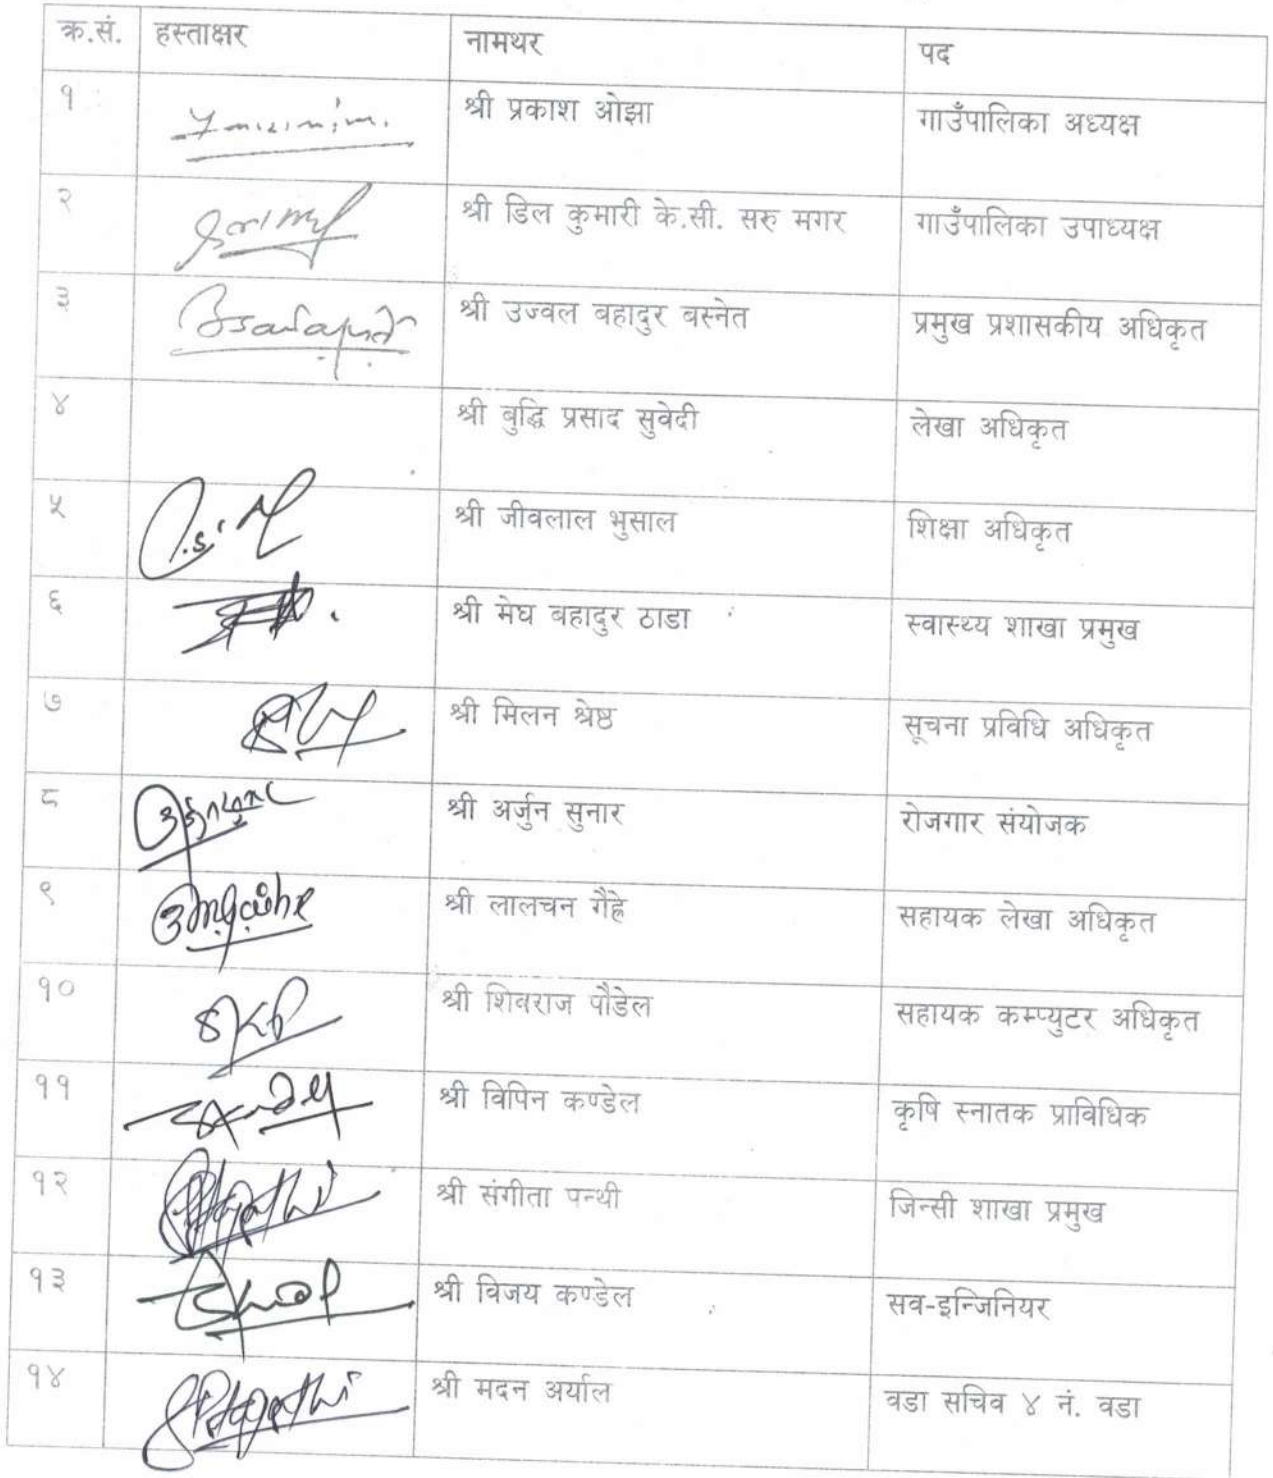 क्र.सं. हस्ताक्षर नामथर पद
१ श्री प्रकाश ओझा गाउँपालिका अध्यक्ष
२ श्री डिल कुमारी के.सी. सरु मगर गाउँपालिका उपाध्यक्ष
३ श्री उज्वल बहादुर बस्नेत प्रमुख प्रशासकीय अधिकृत
४ श्री बुद्धि प्रसाद सुवेदी लेखा अधिकृत
५ श्री जीवलाल भुसाल शिक्षा अधिकृत
६ श्री मेघ बहादुर ठाडा स्वास्थ्य शाखा प्रमुख
७ श्री मिलन श्रेष्ठ सूचना प्रविधि अधिकृत
८ श्री अर्जुन सुनार रोजगार संयोजक
९ श्री लालचन गैह्रे सहायक लेखा अधिकृत
१० श्री शिवराज पौडेल सहायक कम्प्युटर अधिकृत
११ श्री विपिन कण्डेल कृषि स्नातक प्राविधिक
१२ श्री संगीता पन्थी जिन्सी शाखा प्रमुख
१३ श्री विजय कण्डेल सव-इन्जिनियर
१४ श्री मदन अर्याल वडा सचिव ४ नं. वडा